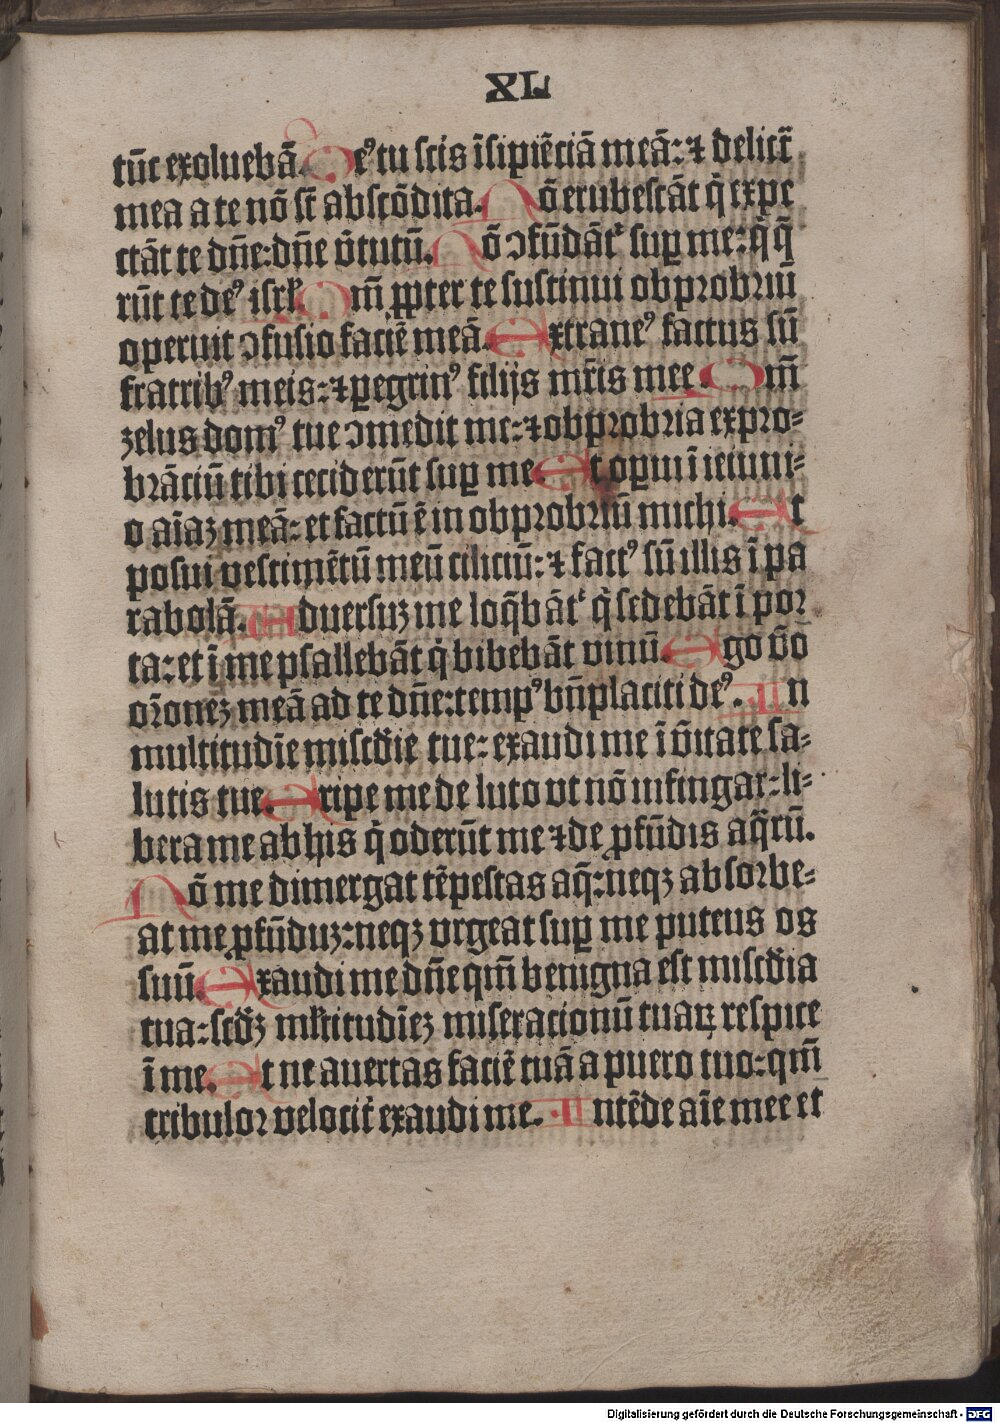 XL
tūc exoluebā. Deꝰ tu scis īsipiēciā meā: ⁊ delict̄
mea a te nō st̄ abscōdita. Nō erubescāt q̇ expe
ctāt te dn̄e: dn̄e v̇tutū. Nō ↄfūdāt᷑ suꝑ me: q̇ q̄
rūt te deꝰ isrl̄. Qm̄ ꝓpter te sustinui obprobriū
operuit ↄfusio faciē meā. Extraneꝰ factus sū
fratribꝰ meis: ⁊ ꝑegrinꝰ filijs mr̄is mee. Qm̄
zelus domꝰ tue ↄmedit me: ⁊ obprobria expro-
brāciū tibi ceciderūt suꝑ me. Et oꝑui ī ieiuni-
o aīaz meā: et factū ē in obprobriū michi. Et
posui vestimētū meū ciliciū: ⁊ factꝰ sū illis ī pa
rabolā. Aduersuz me loq̄bāt᷑ q̇ sedebāt ī por
ta: et ī me psallebāt q̇ bibebāt vinū. Ego v̄o
or̄onez meā ad te dn̄e: tempꝰ bn̄placiti deꝰ. In
multitudīe miscd̄ie tue: exaudi me ī v̇itate sa-
lutis tue. Eripe me de luto vt nō infingar: li-
bera me ab his q̇ oderūt me ⁊ de ꝓfūdis aq̄rū.
Nō me dimergat tēpestas aq̄: neqz absorbe-
at me ꝓfūduz: neqz vrgeat suꝑ me puteus os
suū. Exaudi me dn̄e qm̄ benigna est miscd̄ia
tua: scd̄z ml̄titudīez miseracionū tuaꝝ respice
ī me. Et ne auertas faciē tuā a puero tuo: qm̄
tribulor velocit̄ exaudi me. Intēde aīe mee et
Digitalisierung gefördert durch die Deutsche Forschungsgemeinschaft - DFG